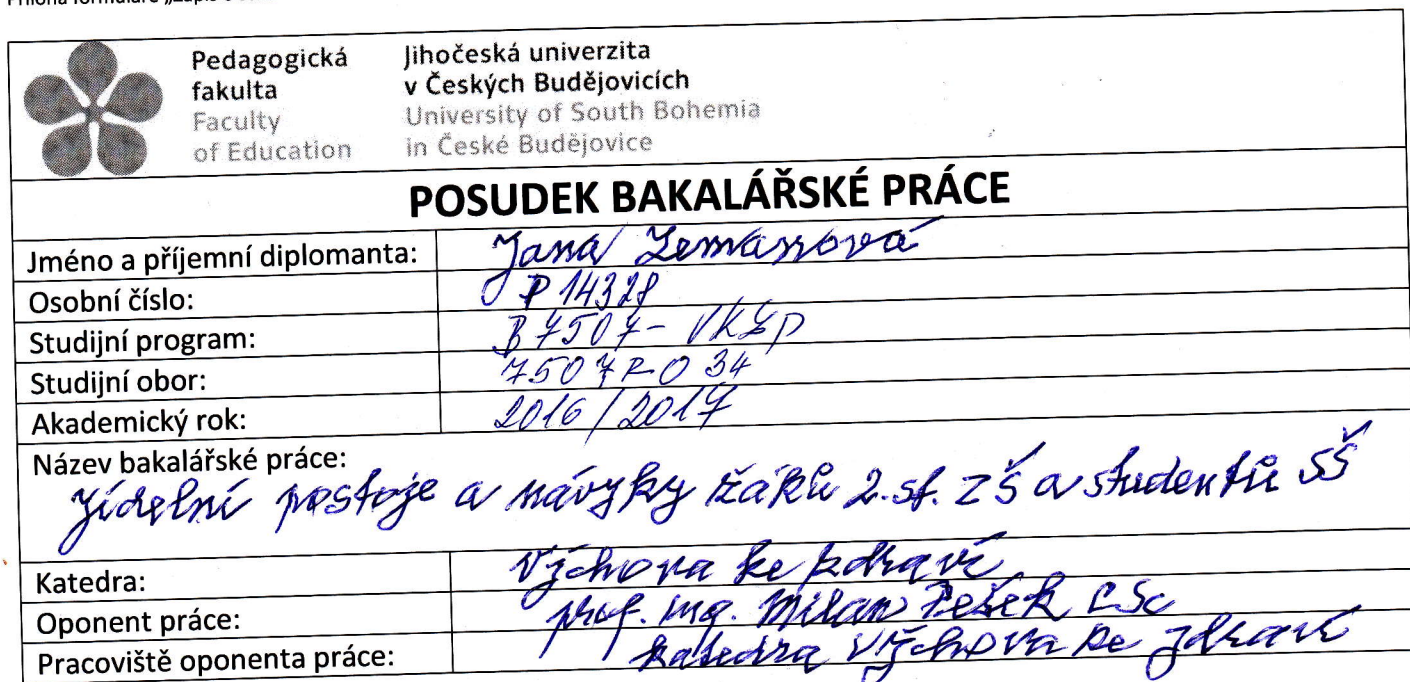 Pedagogická fakulta
Faculty of Education
Jihočeská univerzita
v Českých Budějovicích
University of South Bohemia
in České Budějovice
POSUDEK BAKALÁŘSKÉ PRÁCE
Jméno a příjemní diplomanta: Jana Zemanová
Osobní číslo: P 14328
Studijní program: B 7507 - VKZP
Studijní obor: 7507 R O 34
Akademický rok: 2016/2017
Název bakalářské práce:
Jídelní postoje a návyky žáků 2. st. ZŠ a studentů SŠ
Katedra: Výchova ke zdraví
Oponent práce: prof. ing. Milan Pešek CSc
Pracoviště oponenta práce: katedra Výchova ke zdraví